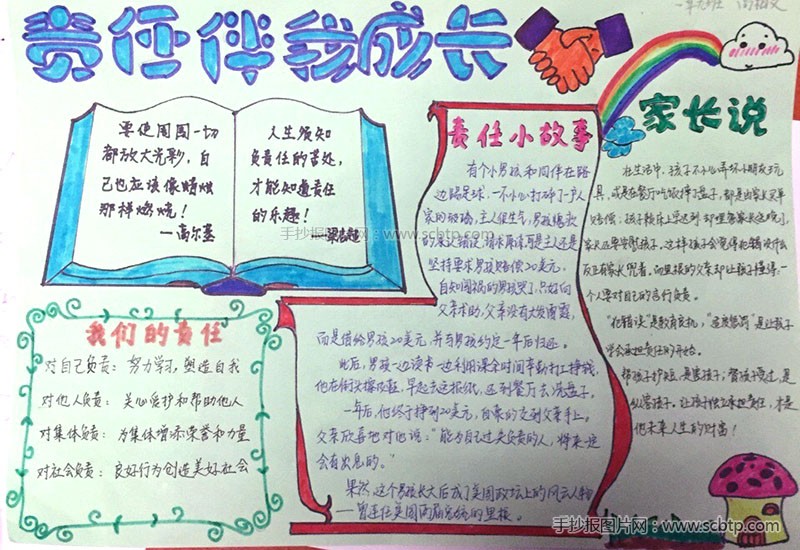 责任伴我成长
要使周围一切
都放大光彩，自
己也应该像蜡烛
那样燃烧！
—高尔基
人生须知
负责任的苦处，
才能知道责任
的乐趣！
—梁启超
我们的责任
对自己负责：努力学习，塑造自我
对他人负责：关心爱护和帮助他人
对集体负责：为集体增添荣誉和力量
对社会负责：良好行为创造美好社会
责任小故事
有个小男孩和同伴在路
边踢足球，一不小心打碎了一户人
家的玻璃，主人很生气，男孩
坚持要求男孩赔偿20美元，
自知闯祸的男孩哭了，只好向
父亲求助，父亲没有大发雷霆，
而是借给男孩20美元，并与男孩约定一年后归还。
此后，男孩一边读书一边利用课余时间辛勤打工挣钱，
他在街头擦皮鞋，早起去送报纸，还到餐厅去洗盘子。
一年后，他终于挣到20美元，自豪的交到父亲手上。
父亲欣喜地对他说：“能为自己过失负责的人，将来一定
会有出息的。”
果然，这个男孩长大后成了美国政坛上的风云人物
—曾连任美国两届总统的里根。
家长说
在生活中，孩子不小心弄坏小朋友玩
具，或是在餐厅吃饭摔了盘子，都是由家长买单
赔偿，孩子
家长还要安慰孩子，这样孩子会觉得犯错没什么
反正有家长兜着，而里根的父亲却让孩子懂得，一
个人要对自己的言行负责。
“犯错误”是教育良机，
学会承担责任的开始。
帮孩子护短，是害孩子；替孩子受过，是
纵容孩子。让孩子独立承担责任，才是
他未来人生的财富！
手抄报图片网：www.scbtp.com
手抄报图片网：www.scbtp.com